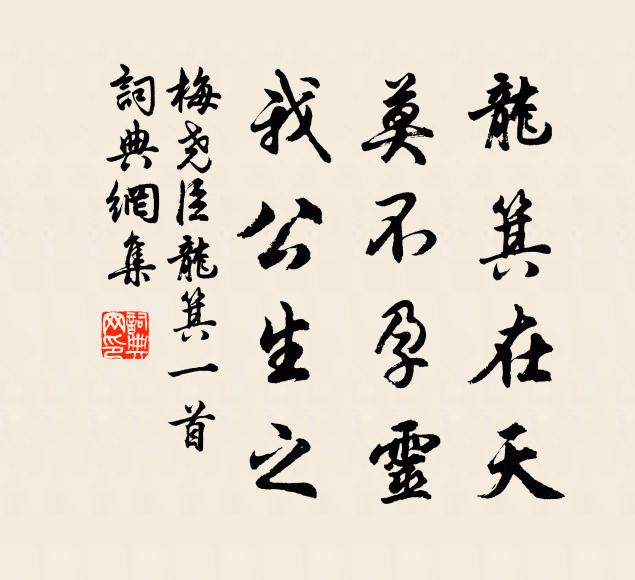 龍箕在天
莫不孕靈
我公生之
梅尧臣龍箕一首
詞典網集
詞典网印